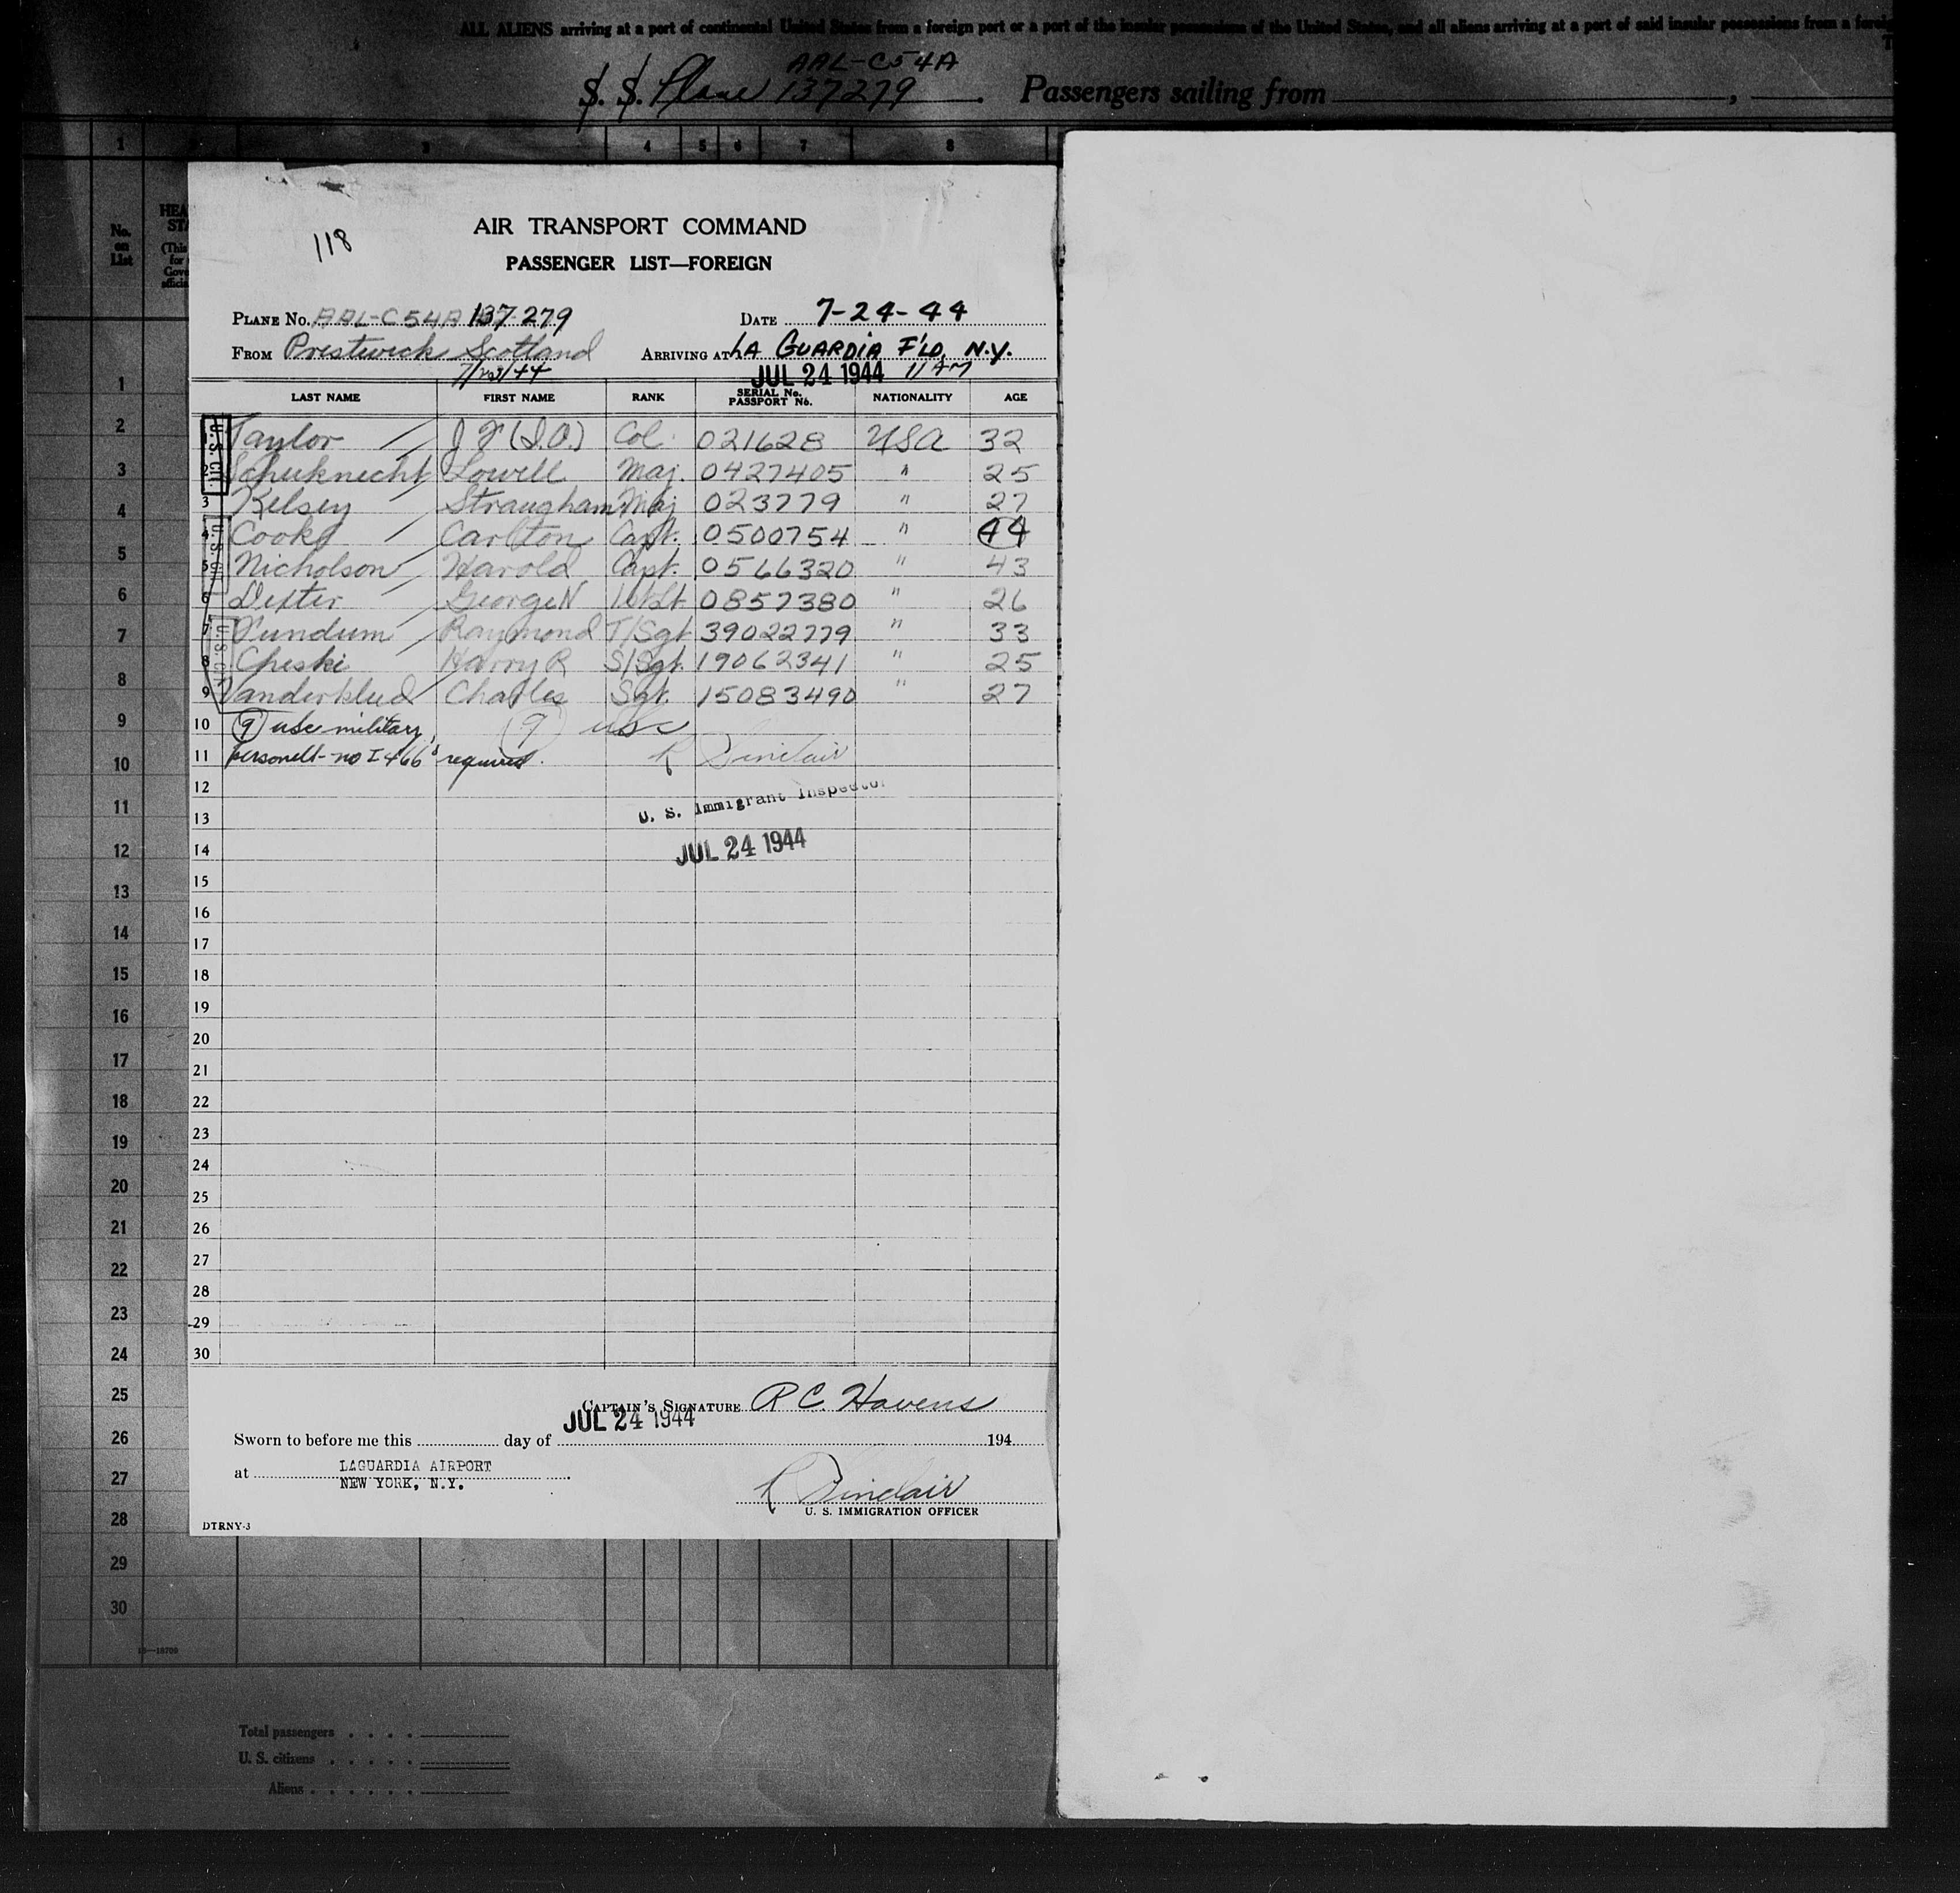 ALL ALIENS arriving at a port of continental United States from a foreign port or a port of the insular possessions of the United States, and all aliens arriving at a port of said insular possessions from a
AAL-C54A
S. S. Plane 137279. Passengers sailing from
1 3 4 5 6 7 8
No. on List
118
AIR TRANSPORT COMMAND
PASSENGER LIST—FOREIGN
PLANE No. AAL-C54A 137279 DATE 7-24-44
FROM Prestwick Scotland ARRIVING AT LA GUARDIA F'LD, N.Y.
JUL 24 1944 11 AM
LAST NAME FIRST NAME RANK SERIAL No. PASSPORT No. NATIONALITY AGE
1 Taylor J F (I.O.) Col. 021628 USA 32
2 Schuknecht Lowell Maj. 0427405 " 25
3 Kelsey Straugham Maj 023779 " 27
4 Cooke Carlton Capt. 0500754 " 44
5 Nicholson Harold Capt. 0566320 " 43
6 Dexter George N 1st Lt 0857380 " 26
7 Raymond T/Sgt 39022779 " 33
8 Cheski Harry R S/Sgt. 19062341 " 25
9 Charles Sgt. 15083490 " 27
10 (9) usc military, (9) usc
11 personell - no I 466's required. R Sinclair
12
U. S. Immigrant Inspector
13
JUL 24 1944
14
15
16
17
18
19
20
21
22
23
24
25
26
27
28
29
30
CAPTAIN'S SIGNATURE R C. Havens
JUL 24 1944
Sworn to before me this day of 194
at LAGUARDIA AIRPORT
NEW YORK, N.Y.
R Sinclair
U. S. IMMIGRATION OFFICER
DTRNY-3
1
2
3
4
5
6
7
8
9
10
11
12
13
14
15
16
17
18
19
20
21
22
23
24
25
26
27
28
29
30
Total passengers
U. S. citizens
Aliens